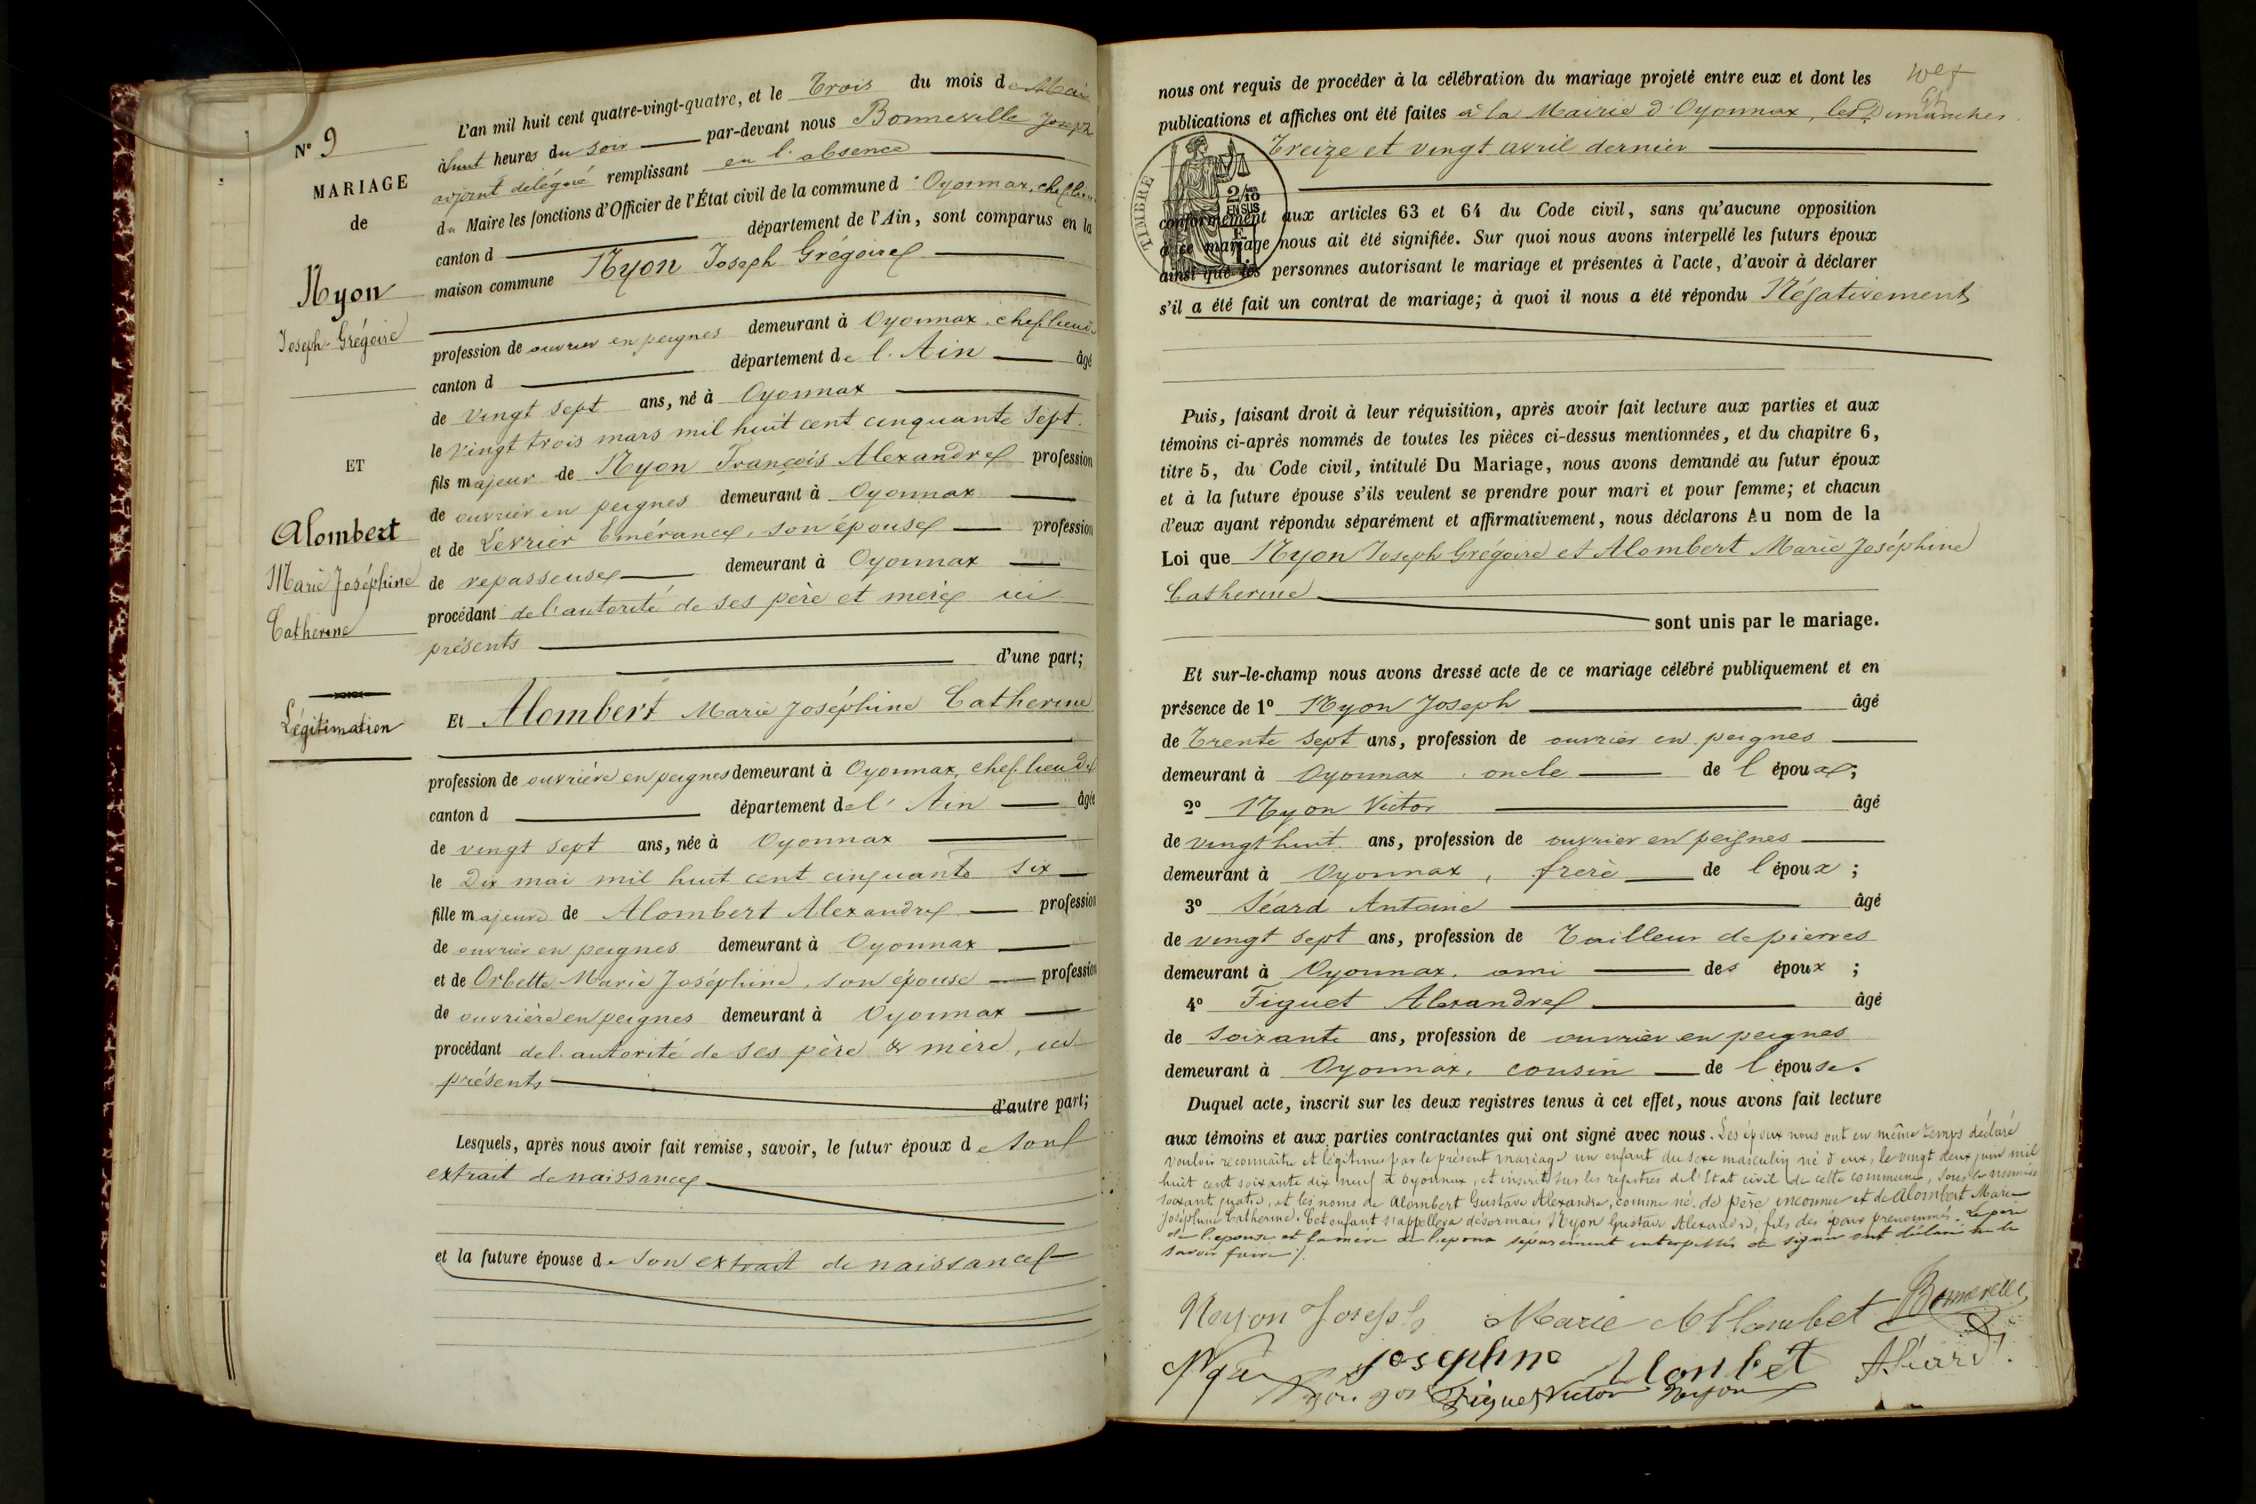 N° 9
MARIAGE
de
Nyon
Joseph Grégoire
ET
Alombert
Marie Joséphine
Catherine
Légitimation
L'an mil huit cent quatre-vingt-quatre, et le Trois du mois de Mai
à huit heures du soir par-devant nous Bonneville Joseph
adjoint délégué remplissant en l'absence
du Maire les fonctions d'Officier de l'État civil de la commune d'Oyonnax, chef lieu
canton d département de l'Ain, sont comparus en la
maison commune Nyon Joseph Grégoire
profession de ouvrier en peignes demeurant à Oyonnax, chef lieu de
canton d département de l'Ain âgé
de vingt sept ans, né à Oyonnax
le vingt trois mars mil huit cent cinquante sept.
fils majeur de Nyon François Alexandre profession
de ouvrier en peignes demeurant à Oyonnax
et de Levrier Emérance, son épouse profession
de repasseuse demeurant à Oyonnax
procédant de l'autorité de ses père et mère ici
présents
d'une part;
Et Alombert Marie Joséphine Catherine
profession de ouvrière en peignes demeurant à Oyonnax, chef lieu de
canton d département de l'Ain âgée
de vingt sept ans, née à Oyonnax
le Dix mai mil huit cent cinquante six
fille majeure de Alombert Alexandre profession
de ouvrier en peignes demeurant à Oyonnax
et de Orbette Marie Joséphine, son épouse profession
de ouvrière en peignes demeurant à Oyonnax
procédant de l'autorité de ses père & mère, ici
présents
d'autre part;
Lesquels, après nous avoir fait remise, savoir, le futur époux de son
extrait de naissance
et la future épouse de son extrait de naissance
nous ont requis de procéder à la célébration du mariage projeté entre eux et dont les
publications et affiches ont été faites à la Mairie d'Oyonnax, les Dimanches
Treize et vingt avril dernier
TIMBRE
2/10
EN SUS
conformément aux articles 63 et 64 du Code civil, sans qu'aucune opposition
à ce mariage nous ait été signifiée. Sur quoi nous avons interpellé les futurs époux
ainsi que les personnes autorisant le mariage et présentes à l'acte, d'avoir à déclarer
s'il a été fait un contrat de mariage; à quoi il nous a été répondu Négativement
Puis, faisant droit à leur réquisition, après avoir fait lecture aux parties et aux
témoins ci-après nommés de toutes les pièces ci-dessus mentionnées, et du chapitre 6,
titre 5, du Code civil, intitulé Du Mariage, nous avons demandé au futur époux
et à la future épouse s'ils veulent se prendre pour mari et pour femme; et chacun
d'eux ayant répondu séparément et affirmativement, nous déclarons Au nom de la
Loi que Nyon Joseph Grégoire et Alombert Marie Joséphine
Catherine
sont unis par le mariage.
Et sur-le-champ nous avons dressé acte de ce mariage célébré publiquement et en
présence de 1° Nyon Joseph âgé
de Trente sept ans, profession de ouvrier en peignes
demeurant à Oyonnax, oncle de l'époux;
2° Nyon Victor âgé
de vingt huit ans, profession de ouvrier en peignes
demeurant à Oyonnax, frère de l'époux;
3° Séard Antoine âgé
de vingt sept ans, profession de Tailleur de pierres
demeurant à Oyonnax, ami des époux;
4° Figuet Alexandre âgé
de soixante ans, profession de ouvrier en peignes
demeurant à Oyonnax, cousin de l'épouse.
Duquel acte, inscrit sur les deux registres tenus à cet effet, nous avons fait lecture
aux témoins et aux parties contractantes qui ont signé avec nous. Les époux nous ont en même temps déclaré
vouloir reconnaître et légitimer par le présent mariage un enfant du sexe masculin né d'eux, le vingt deux juin mil
huit cent soixante dix neuf à Oyonnax, et inscrit sur les registres de l'Etat civil de cette commune, sous le numéro
soixante quatre, et les noms de Alombert Gustave Alexandre, comme né de père inconnu et de Alombert Marie
Joséphine Catherine. Cet enfant s'appellera désormais Nyon Gustave Alexandre, fils des époux prénommés. Le père
de l'épouse et la mère de l'époux séparément interpellés de signer ont déclaré ne le
savoir faire ./.
Neyon Joseph Marie Allombet Bonneville
Josephine Alonbet A Séard
Figuet Victor Neyon